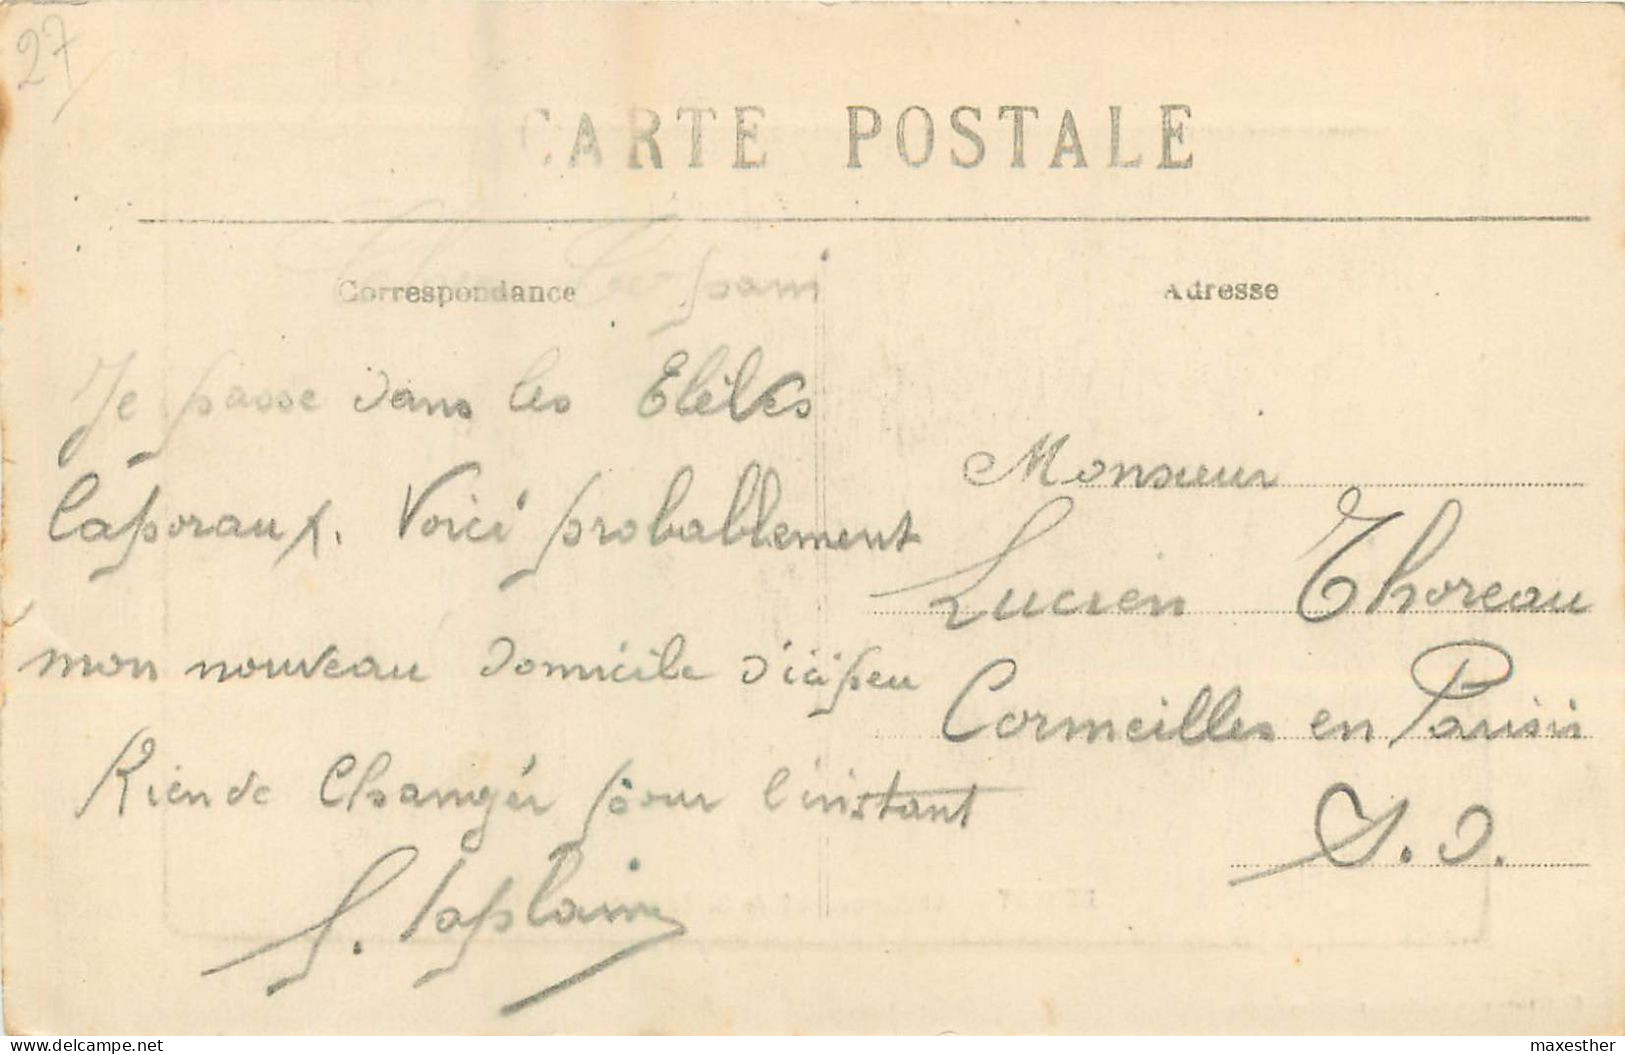 27
CARTE POSTALE
Correspondance
Adresse
Je passe dans les Elèves
Caporaux. Voici probablement
mon nouveau domicile d'ici peu
Rien de Changer pour l'instant
Monsieur
Lucien Thoreau
Cormeilles en Parisis
S. O.
delcampe.net
maxesther